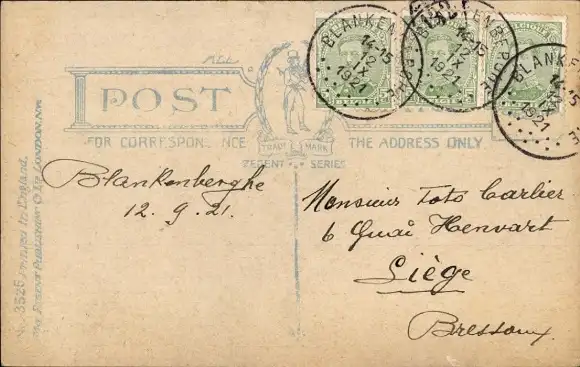 BLANKENBERGHE
14-15
12
IX
1921
BLANKENBERGHE
14-15
12
IX
1921
BLANKE
15
IX
1921
POST
FOR CORRESPONDENCE
THE ADDRESS ONLY
TRADE MARK
REGENT SERIES
Blankenberghe
12.9.21.
Monsieur Toto Carlier
6 Quai Henvart
Liège
Bressoux
No. 3525 Printed in England.
The Regent Publishing Co Ld London, NW